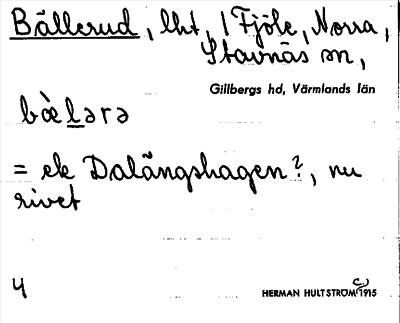 Bällerud, lht, 1 Fjöle, Norra,
Stavnäs sn,
Gillbergs hd, Värmlands län
bæ̀lərə
= ek Dalängshagen?, nu
rivet
4
HERMAN HULTSTRÖM 1915